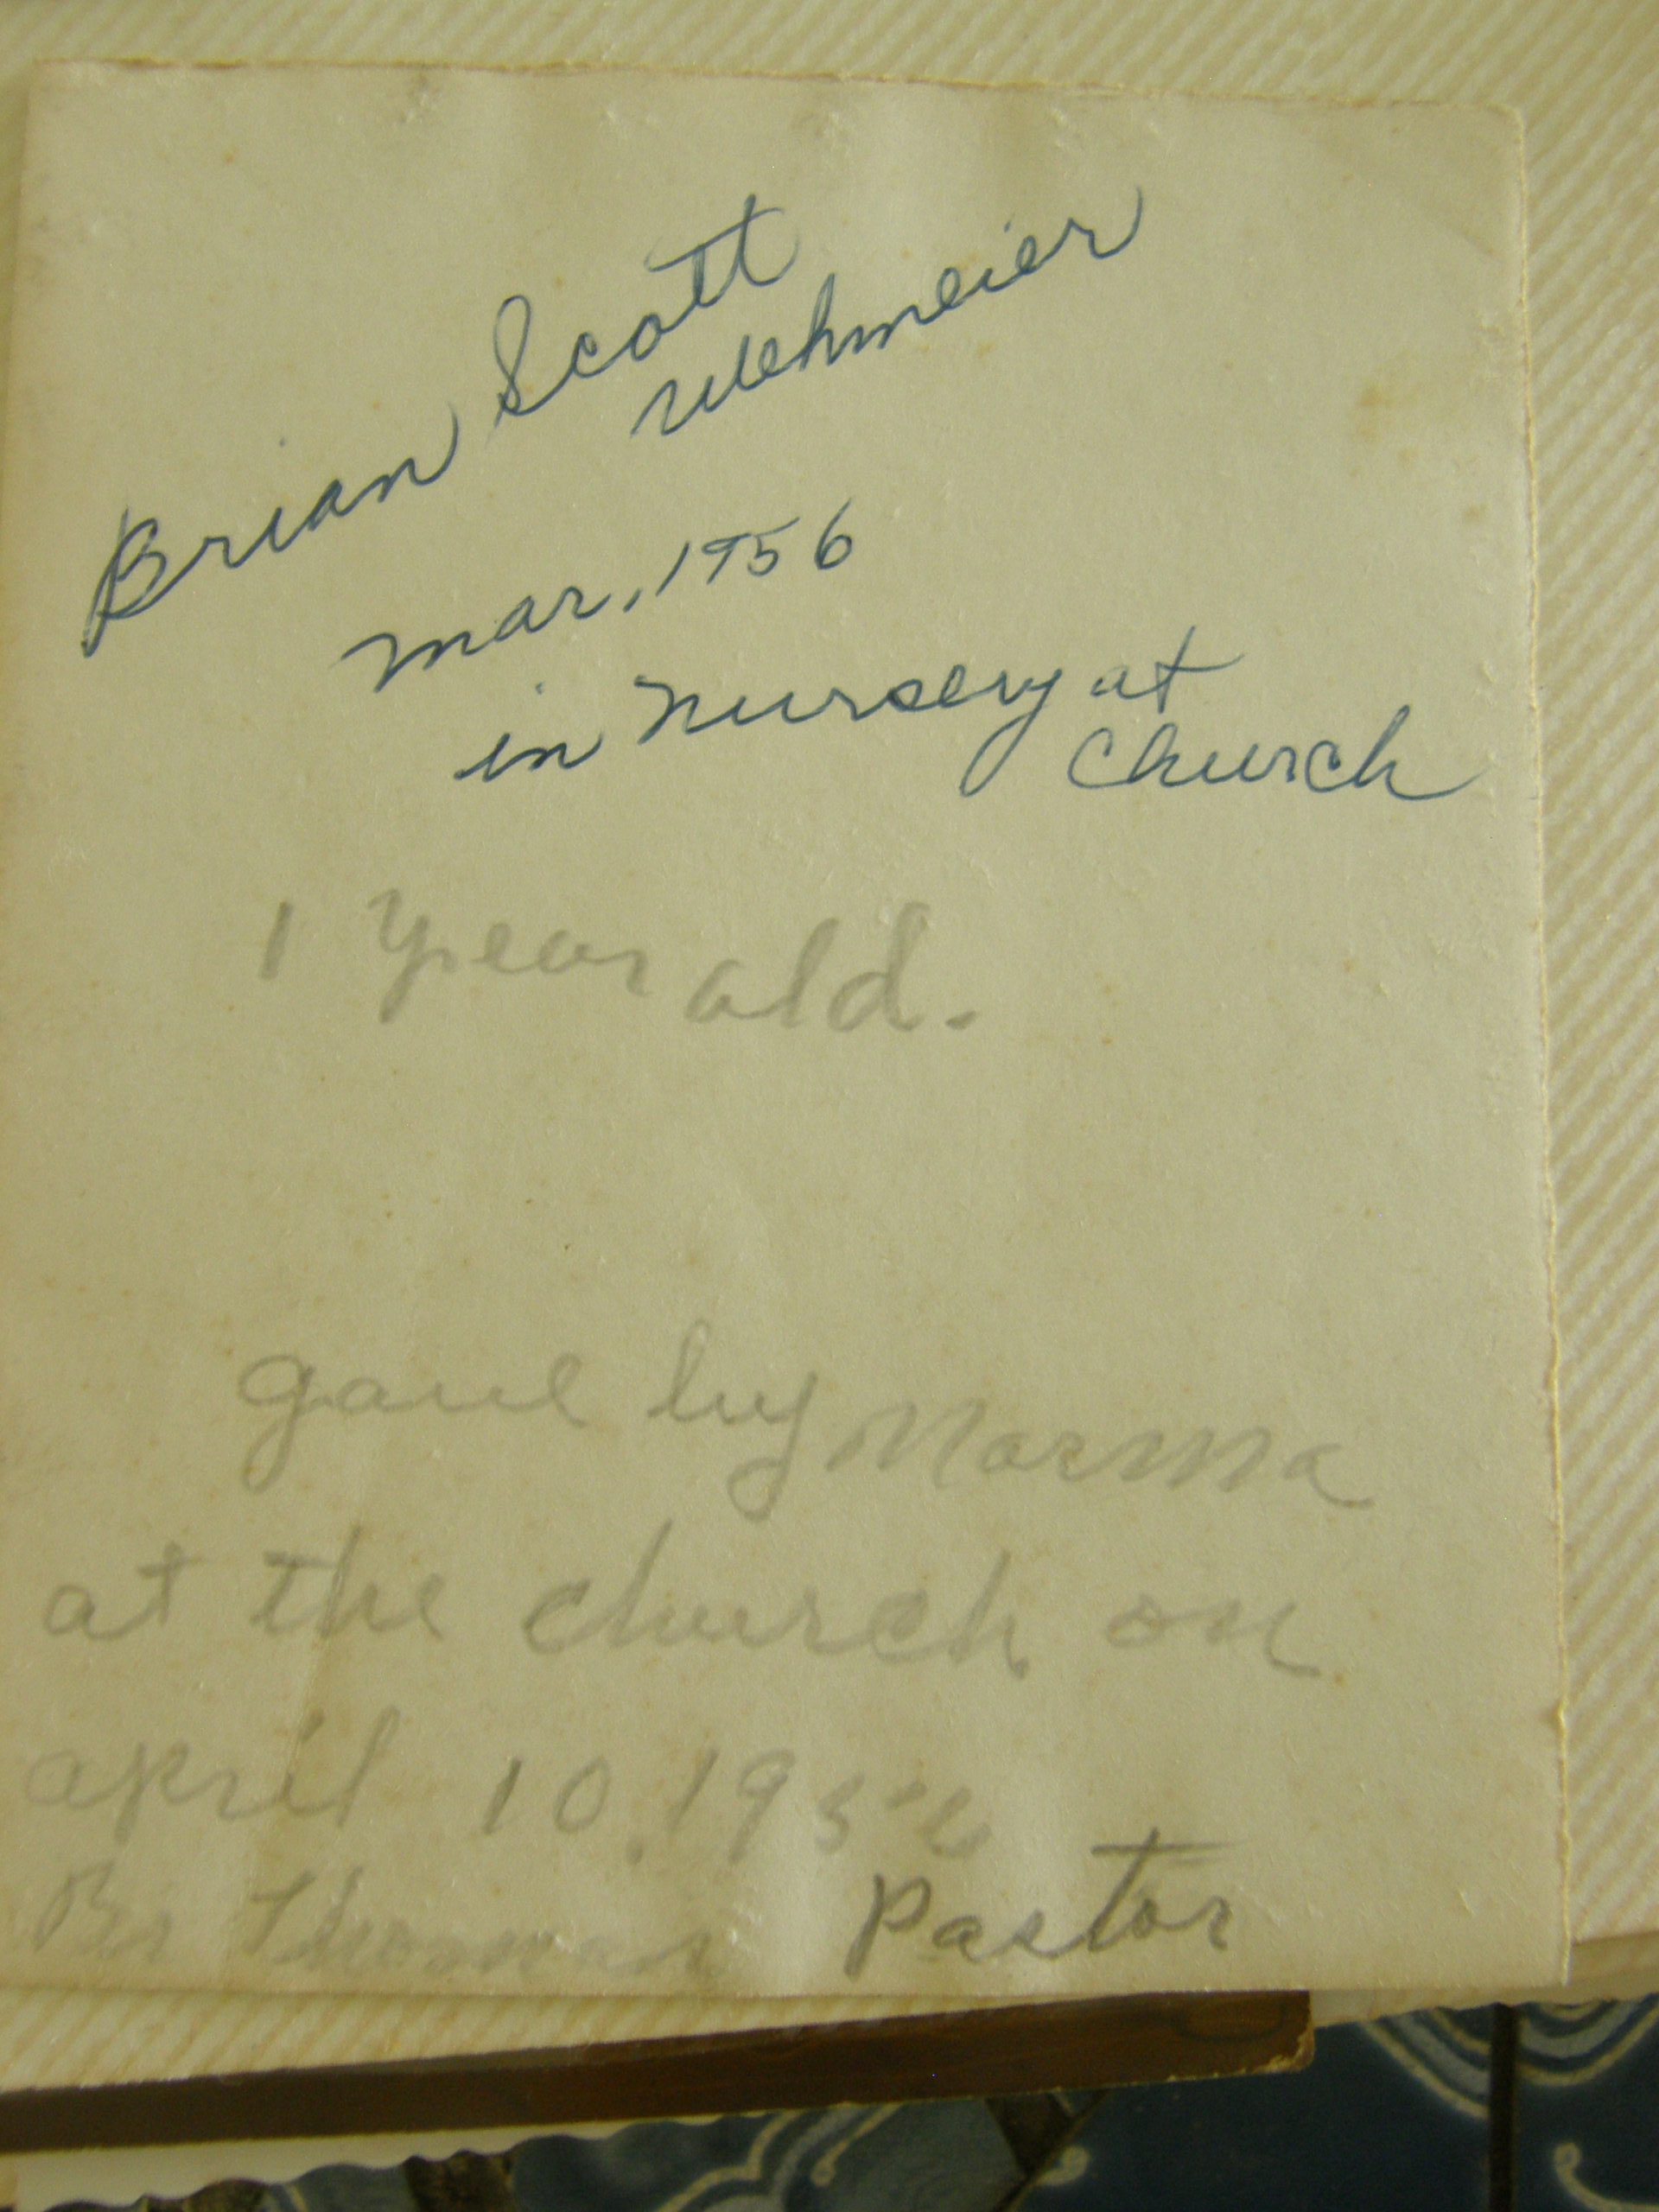 Brian Scott
Wehmeier
Mar, 1956
in Nursery at
Church
1 year old.
gave by Norma
at the church on
april 10, 1956
Br Thomas Pastor